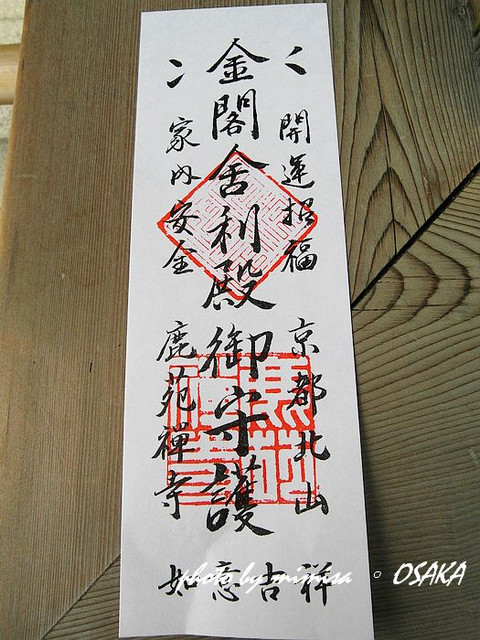 開運招福
京都北山
金閣舍利殿御守護
家内安全
鹿苑禅寺
如意吉祥
photo by mimisa 。 OSAKA